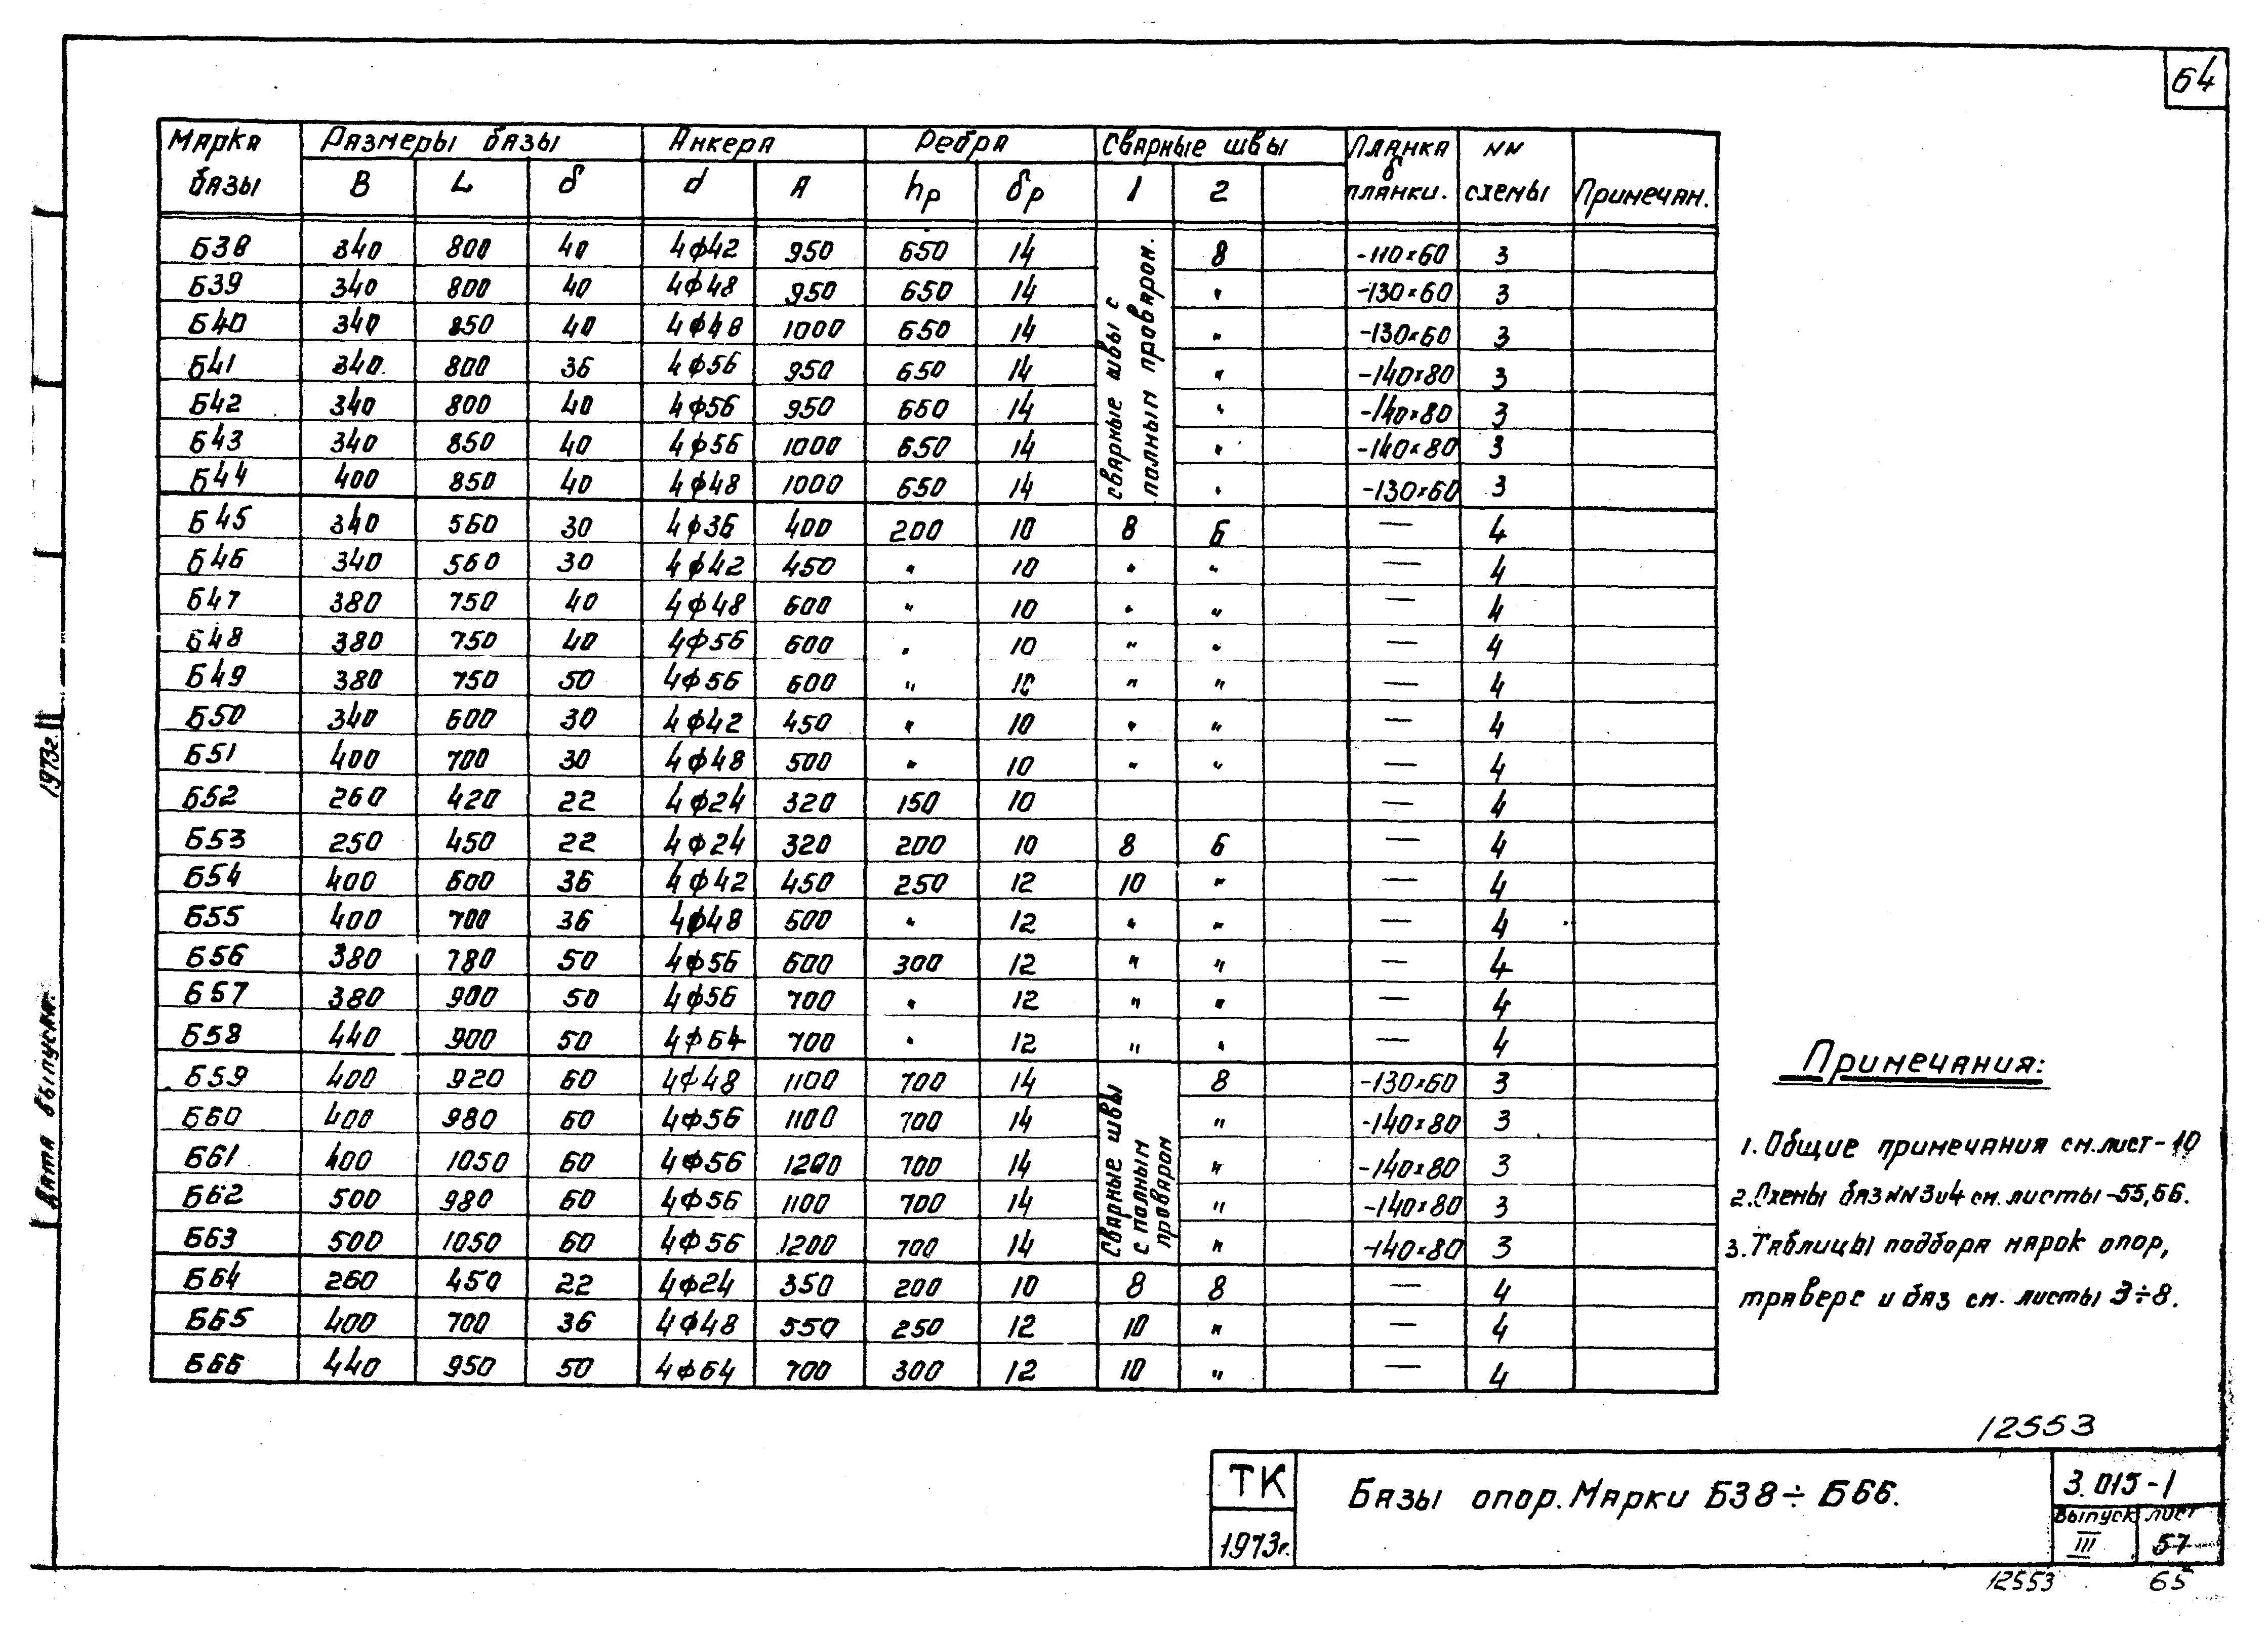 64
Марка базы | Размеры базы | Анкера | Ребра | Сварные швы | Планка δ планки. | NN схемы | Примечан.
В | L | δ | d | А | hр | δр | 1 | 2
Сварные швы с полным проваром.
Б38 | 340 | 800 | 40 | 4ф42 | 950 | 650 | 14 | 8 | -110×60 | 3
Б39 | 340 | 800 | 40 | 4ф48 | 950 | 650 | 14 | " | -130×60 | 3
Б40 | 340 | 850 | 40 | 4ф48 | 1000 | 650 | 14 | " | -130×60 | 3
Б41 | 340 | 800 | 36 | 4ф56 | 950 | 650 | 14 | " | -140×80 | 3
Б42 | 340 | 800 | 40 | 4ф56 | 950 | 650 | 14 | " | -140×80 | 3
Б43 | 340 | 850 | 40 | 4ф56 | 1000 | 650 | 14 | " | -140×80 | 3
Б44 | 400 | 850 | 40 | 4ф48 | 1000 | 650 | 14 | " | -130×60 | 3
Б45 | 340 | 560 | 30 | 4ф36 | 400 | 200 | 10 | 8 | 6 | — | 4
Б46 | 340 | 560 | 30 | 4ф42 | 450 | " | 10 | " | " | — | 4
Б47 | 380 | 750 | 40 | 4ф48 | 600 | " | 10 | " | " | — | 4
Б48 | 380 | 750 | 40 | 4ф56 | 600 | " | 10 | " | " | — | 4
Б49 | 380 | 750 | 50 | 4ф56 | 600 | " | 10 | " | " | — | 4
Б50 | 340 | 600 | 30 | 4ф42 | 450 | " | 10 | " | " | — | 4
Б51 | 400 | 700 | 30 | 4ф48 | 500 | " | 10 | " | " | — | 4
Б52 | 260 | 420 | 22 | 4ф24 | 320 | 150 | 10 | — | 4
Б53 | 250 | 450 | 22 | 4ф24 | 320 | 200 | 10 | 8 | 6 | — | 4
Б54 | 400 | 600 | 36 | 4ф42 | 450 | 250 | 12 | 10 | " | — | 4
Б55 | 400 | 700 | 36 | 4ф48 | 500 | " | 12 | " | " | — | 4
Б56 | 380 | 780 | 50 | 4ф56 | 600 | 300 | 12 | " | " | — | 4
Б57 | 380 | 900 | 50 | 4ф56 | 700 | " | 12 | " | " | — | 4
Б58 | 440 | 900 | 50 | 4ф64 | 700 | " | 12 | " | " | — | 4
Сварные швы с полным проваром
Б59 | 400 | 920 | 60 | 4ф48 | 1100 | 700 | 14 | 8 | -130×60 | 3
Б60 | 400 | 980 | 60 | 4ф56 | 1100 | 700 | 14 | " | -140×80 | 3
Б61 | 400 | 1050 | 60 | 4ф56 | 1200 | 700 | 14 | " | -140×80 | 3
Б62 | 500 | 980 | 60 | 4ф56 | 1100 | 700 | 14 | " | -140×80 | 3
Б63 | 500 | 1050 | 60 | 4ф56 | 1200 | 700 | 14 | " | -140×80 | 3
Б64 | 260 | 450 | 22 | 4ф24 | 350 | 200 | 10 | 8 | 8 | — | 4
Б65 | 400 | 700 | 36 | 4ф48 | 550 | 250 | 12 | 10 | " | — | 4
Б66 | 440 | 950 | 50 | 4ф64 | 700 | 300 | 12 | 10 | " | — | 4
Примечания:
1. Общие примечания см. лист-10
2. Схемы баз NN 3 и 4 см. листы-55,56.
3. Таблицы подбора марок опор,
траверс и баз см. листы 3÷8.
1973г.
Дата выпуска:
12553
ТК
1973г.
Базы опор. Марки Б38÷Б66.
3.015-1
Выпуск | лист
III | 57
12553 65